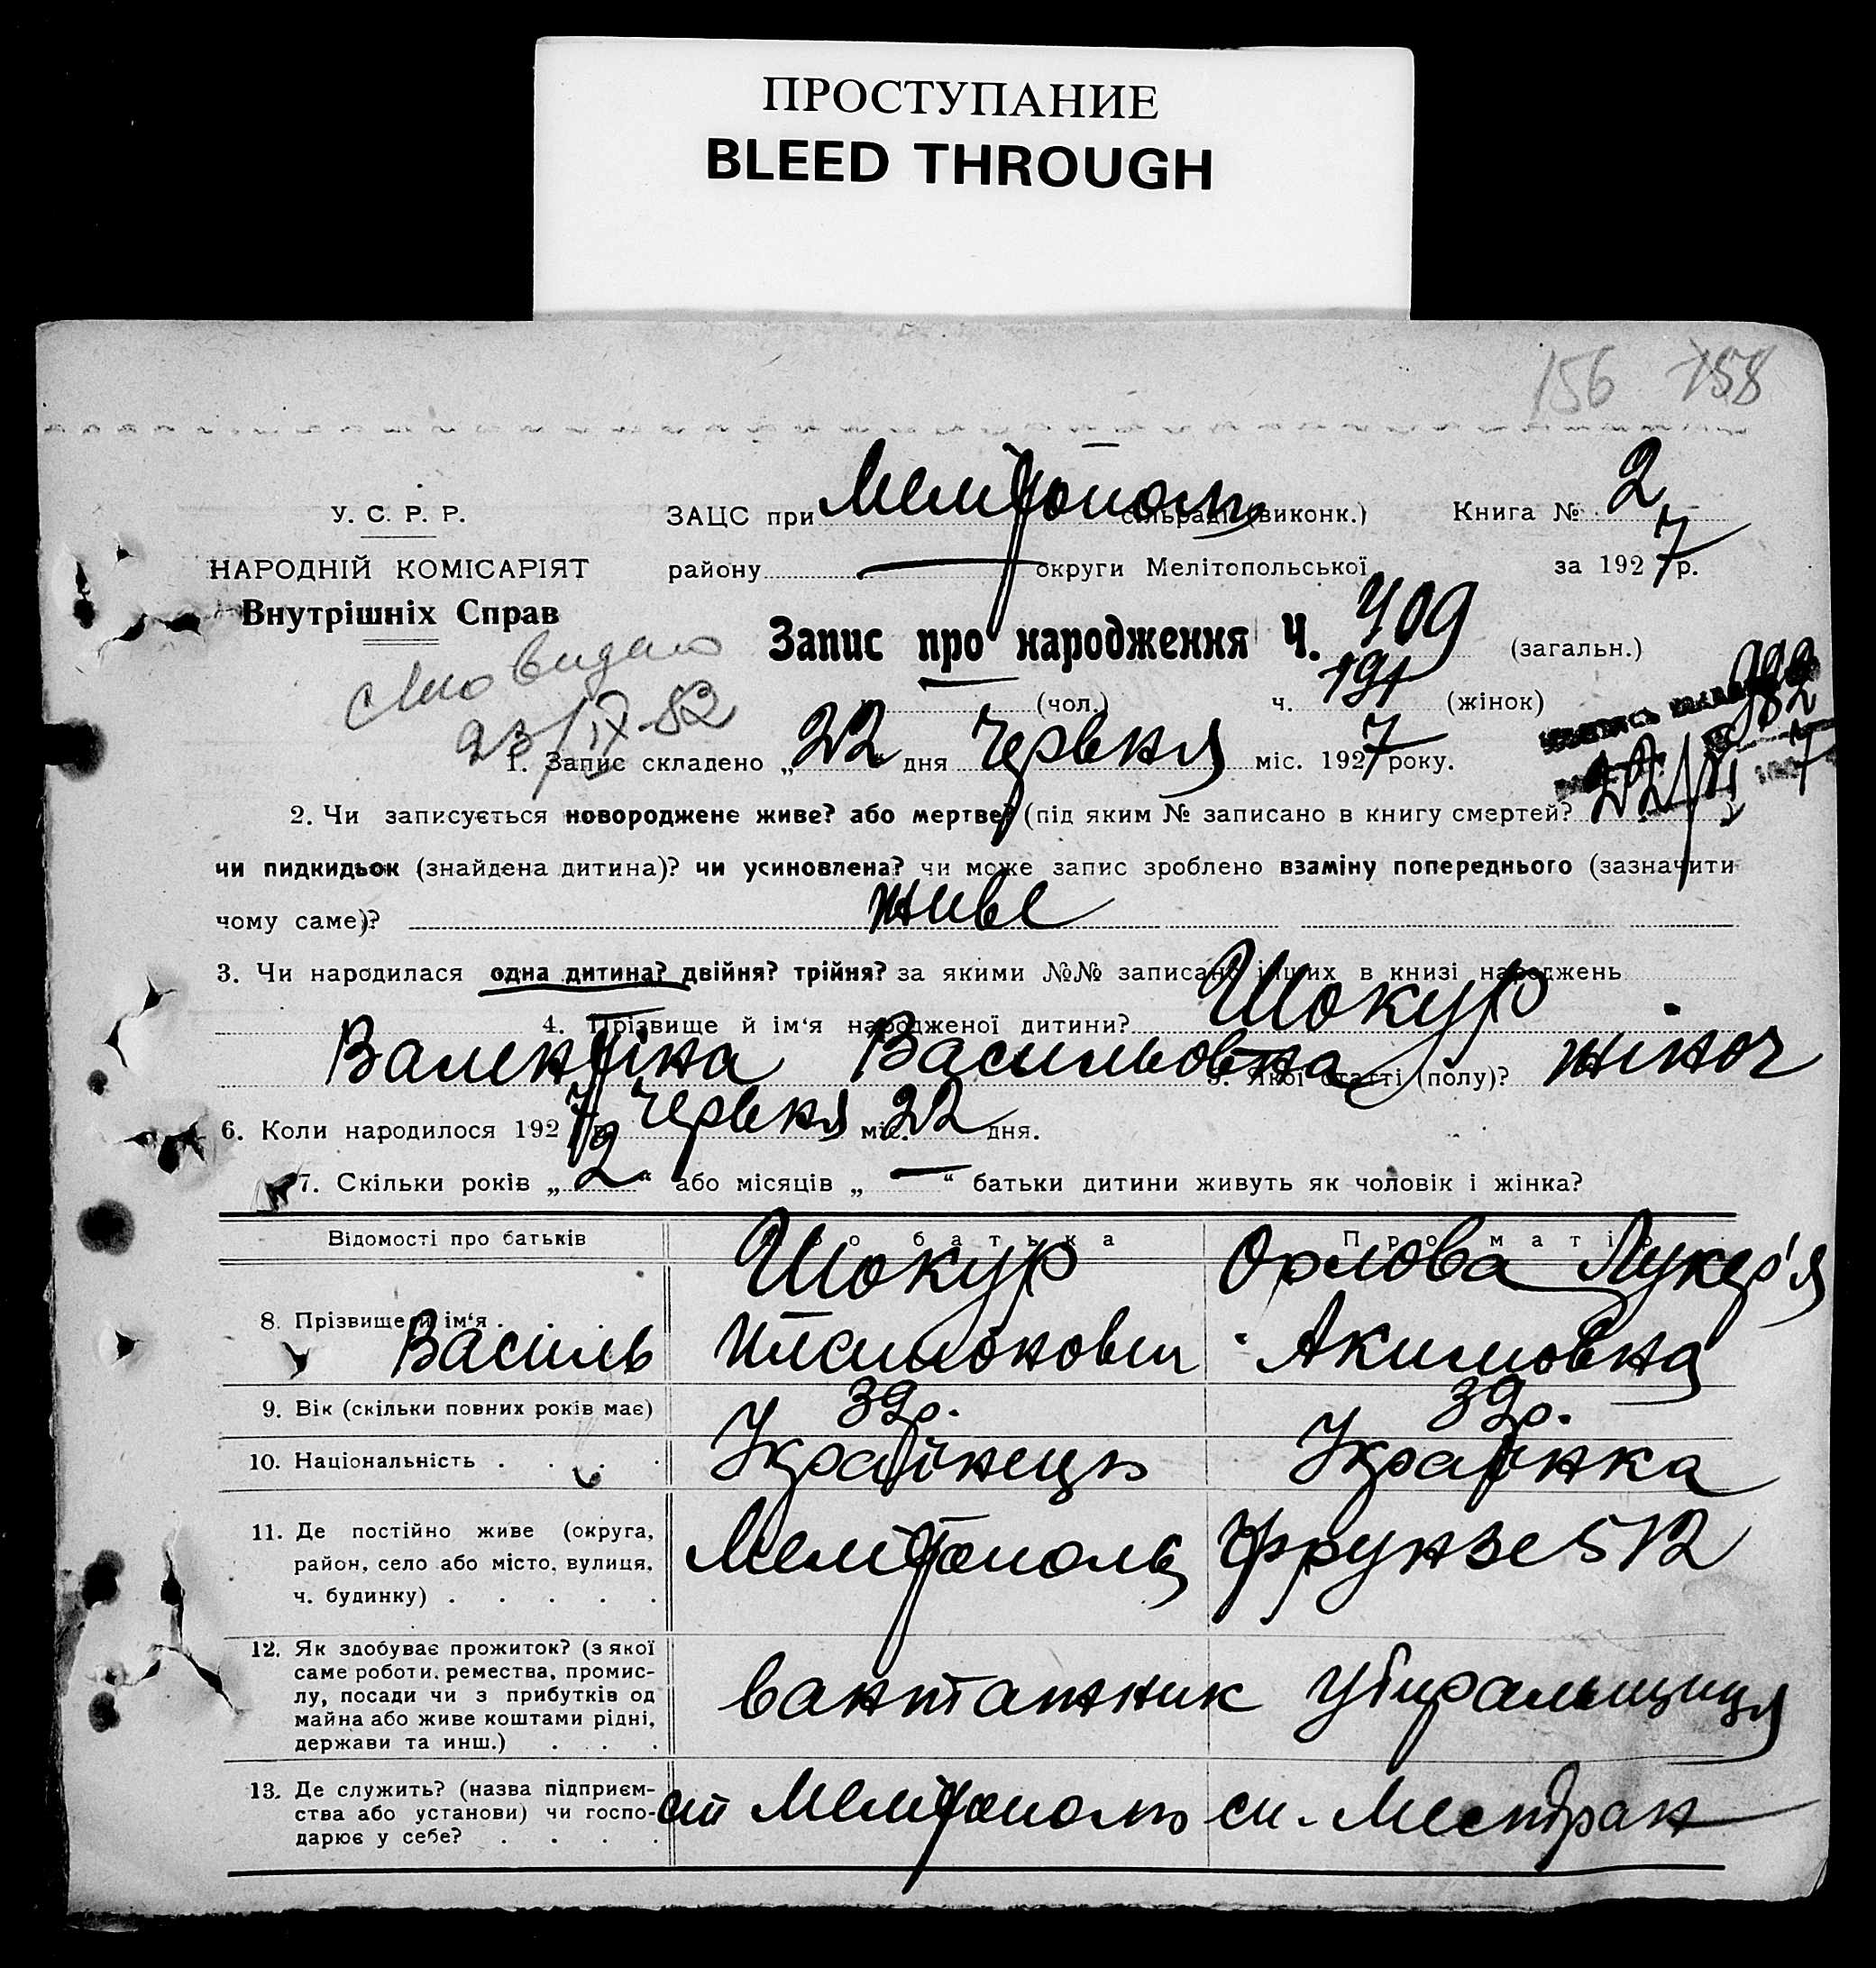 ПРОСТУПАНИЕ
BLEED THROUGH
156 158
У. С. Р. Р.
ЗАЦС при Мелітополь сільраді (виконк.) Книга № 2
НАРОДНІЙ КОМІСАРІЯТ
району — округи Мелітопольської за 1927 р.
Внутрішніх Справ
Запис про народження Ч. 409 (загальн.)
видано
23/IX-52
(чол.) ч. 191 (жінок)
1. Запис складено „22" дня Червня міс. 1927 року.
22/VI 1927
2. Чи записується новороджене живе? або мертве? (під яким № записано в книгу смертей?
чи пидкидьок (знайдена дитина)? чи усиновлена? чи може запис зроблено взаміну попереднього (зазначити
чому саме)? живе
3. Чи народилася одна дитина? двійня? трійня? за якими №№ записано інших в книзі народжень
4. Прізвище й ім'я народженої дитини? Шокур
Валентіна Васильовна 5. Якої статті (полу)? жіноч
6. Коли народилося 1927 р. Червня міс. 22 дня.
7. Скільки років „2" або місяців „—" батьки дитини живуть як чоловік і жінка?
Відомості про батьків Про батька Про матір
Шокур Орлова Лукер'я
8. Прізвище й ім'я .
Василь Акимовна
9. Вік (скільки повних років має) 39р. 39р.
10. Національність . . . . Українець Українка
11. Де постійно живе (округа,
район, село або місто, вулиця,
ч. будинку) . . . . .
Мелітополь Фрунзе 512
12. Як здобуває прожиток? (з якої
саме роботи, ремества, промис-
лу, посади чи з прибутків од
майна або живе коштами рідні,
держави та инш.) . . .
вантажник убиральщиця
13. Де служить? (назва підприєм-
ства або установи) чи госпо-
дарює у себе? . . . .
ст Мелітополь